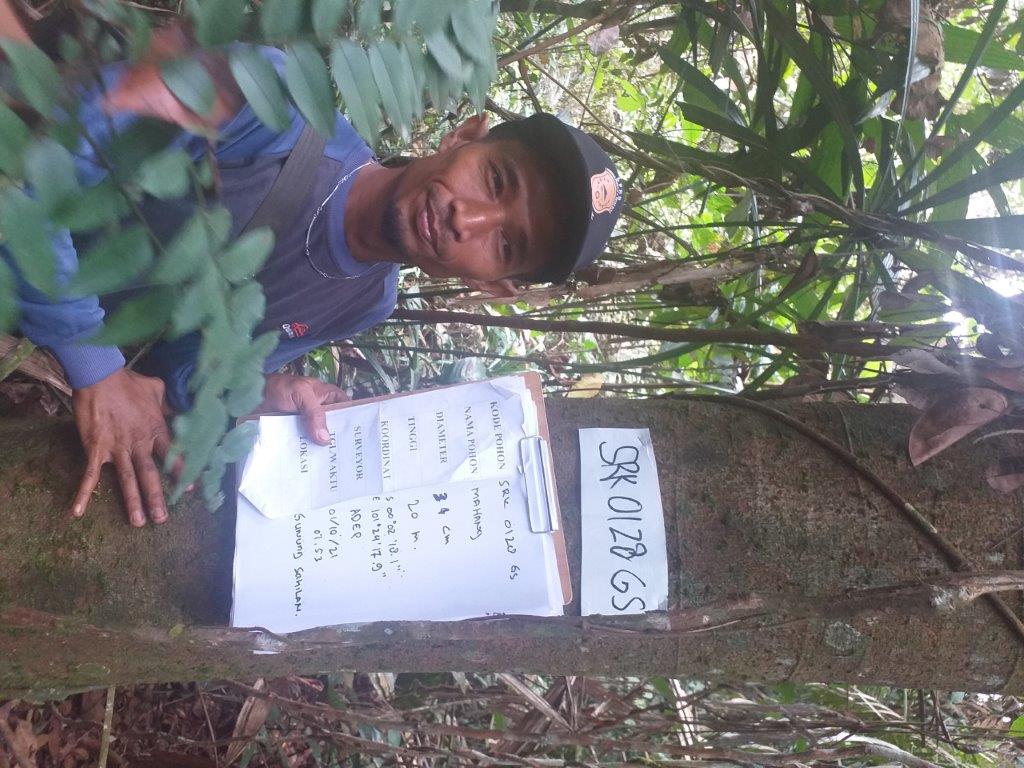 SRK 0120 GS
KODE POHON SRK 0120 GS
NAMA POHON MAHANG
DIAMETER 34 cm
TINGGI 20 m.
KOORDINAT S 00°02'18.1"
E 101°24'17.9"
SURVEYOR ADEP
TGL/WAKTU 01/10/21
07.53
LOKASI GUNUNG SAHILAN.